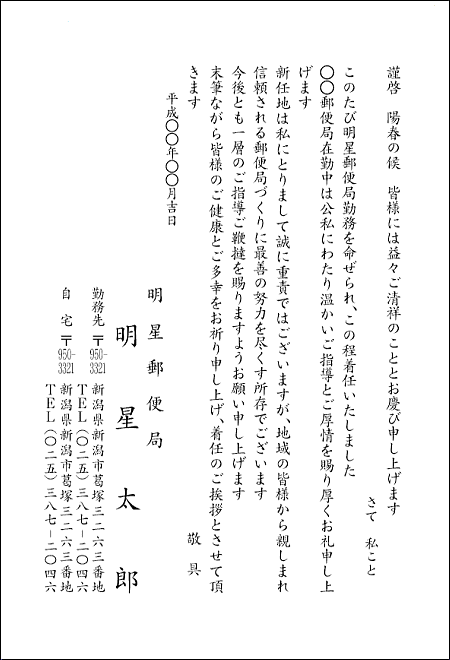 謹啓　陽春の候　皆様には益々ご清祥のこととお慶び申し上げます
さて　私こと
このたび明星郵便局勤務を命ぜられ、この程着任いたしました
〇〇郵便局在勤中は公私にわたり温かいご指導とご厚情を賜り厚くお礼申し上
げます
新任地は私にとりまして誠に重責ではございますが、地域の皆様から親しまれ
信頼される郵便局づくりに最善の努力を尽くす所存でございます
今後とも一層のご指導ご鞭撻を賜りますようお願い申し上げます
末筆ながら皆様のご健康とご多幸をお祈り申し上げ、着任のご挨拶とさせて頂
きます
敬具
平成〇〇年〇〇月吉日
明星郵便局
明星太郎
勤務先　〒950-3321　新潟県新潟市葛塚三二六三番地
ＴＥＬ（〇二五）三八七−二〇四六
自　宅　〒950-3321　新潟県新潟市葛塚三二六三番地
ＴＥＬ（〇二五）三八七−二〇四六